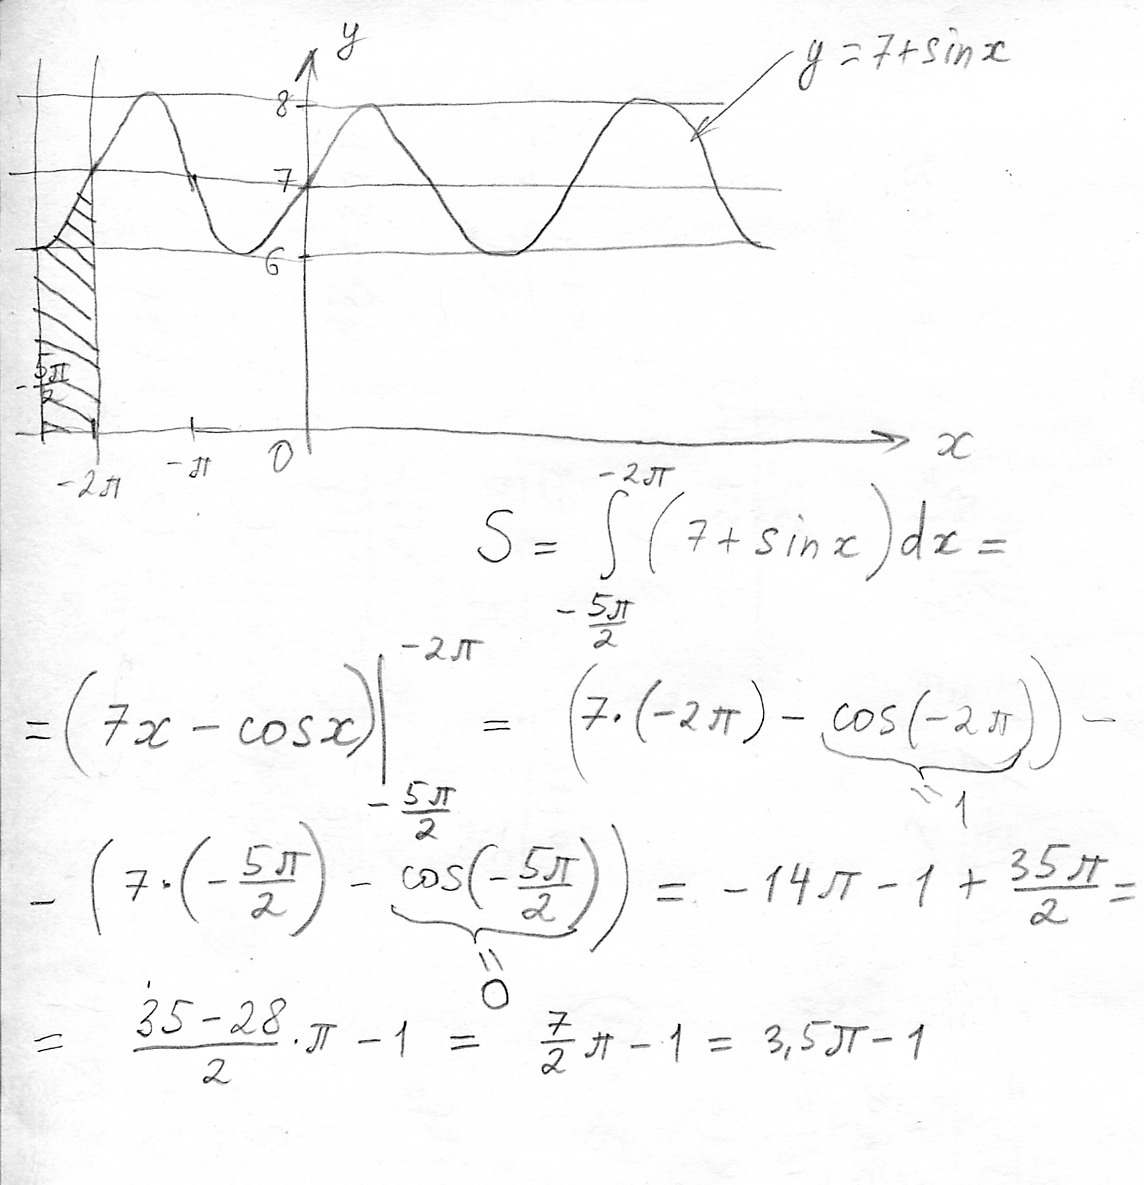 y
y = 7+sinx
8
7
6
-5π/2
-2π
-π
0
x
S = ∫_{-5π/2}^{-2π} (7 + sinx)dx =
= (7x - cosx)|_{-5π/2}^{-2π} = (7·(-2π) - cos(-2π)) -
= 1
- (7·(-5π/2) - cos(-5π/2)) = -14π - 1 + 35π/2 =
= 0
= (35-28)/2 · π - 1 = 7/2 π - 1 = 3,5π - 1